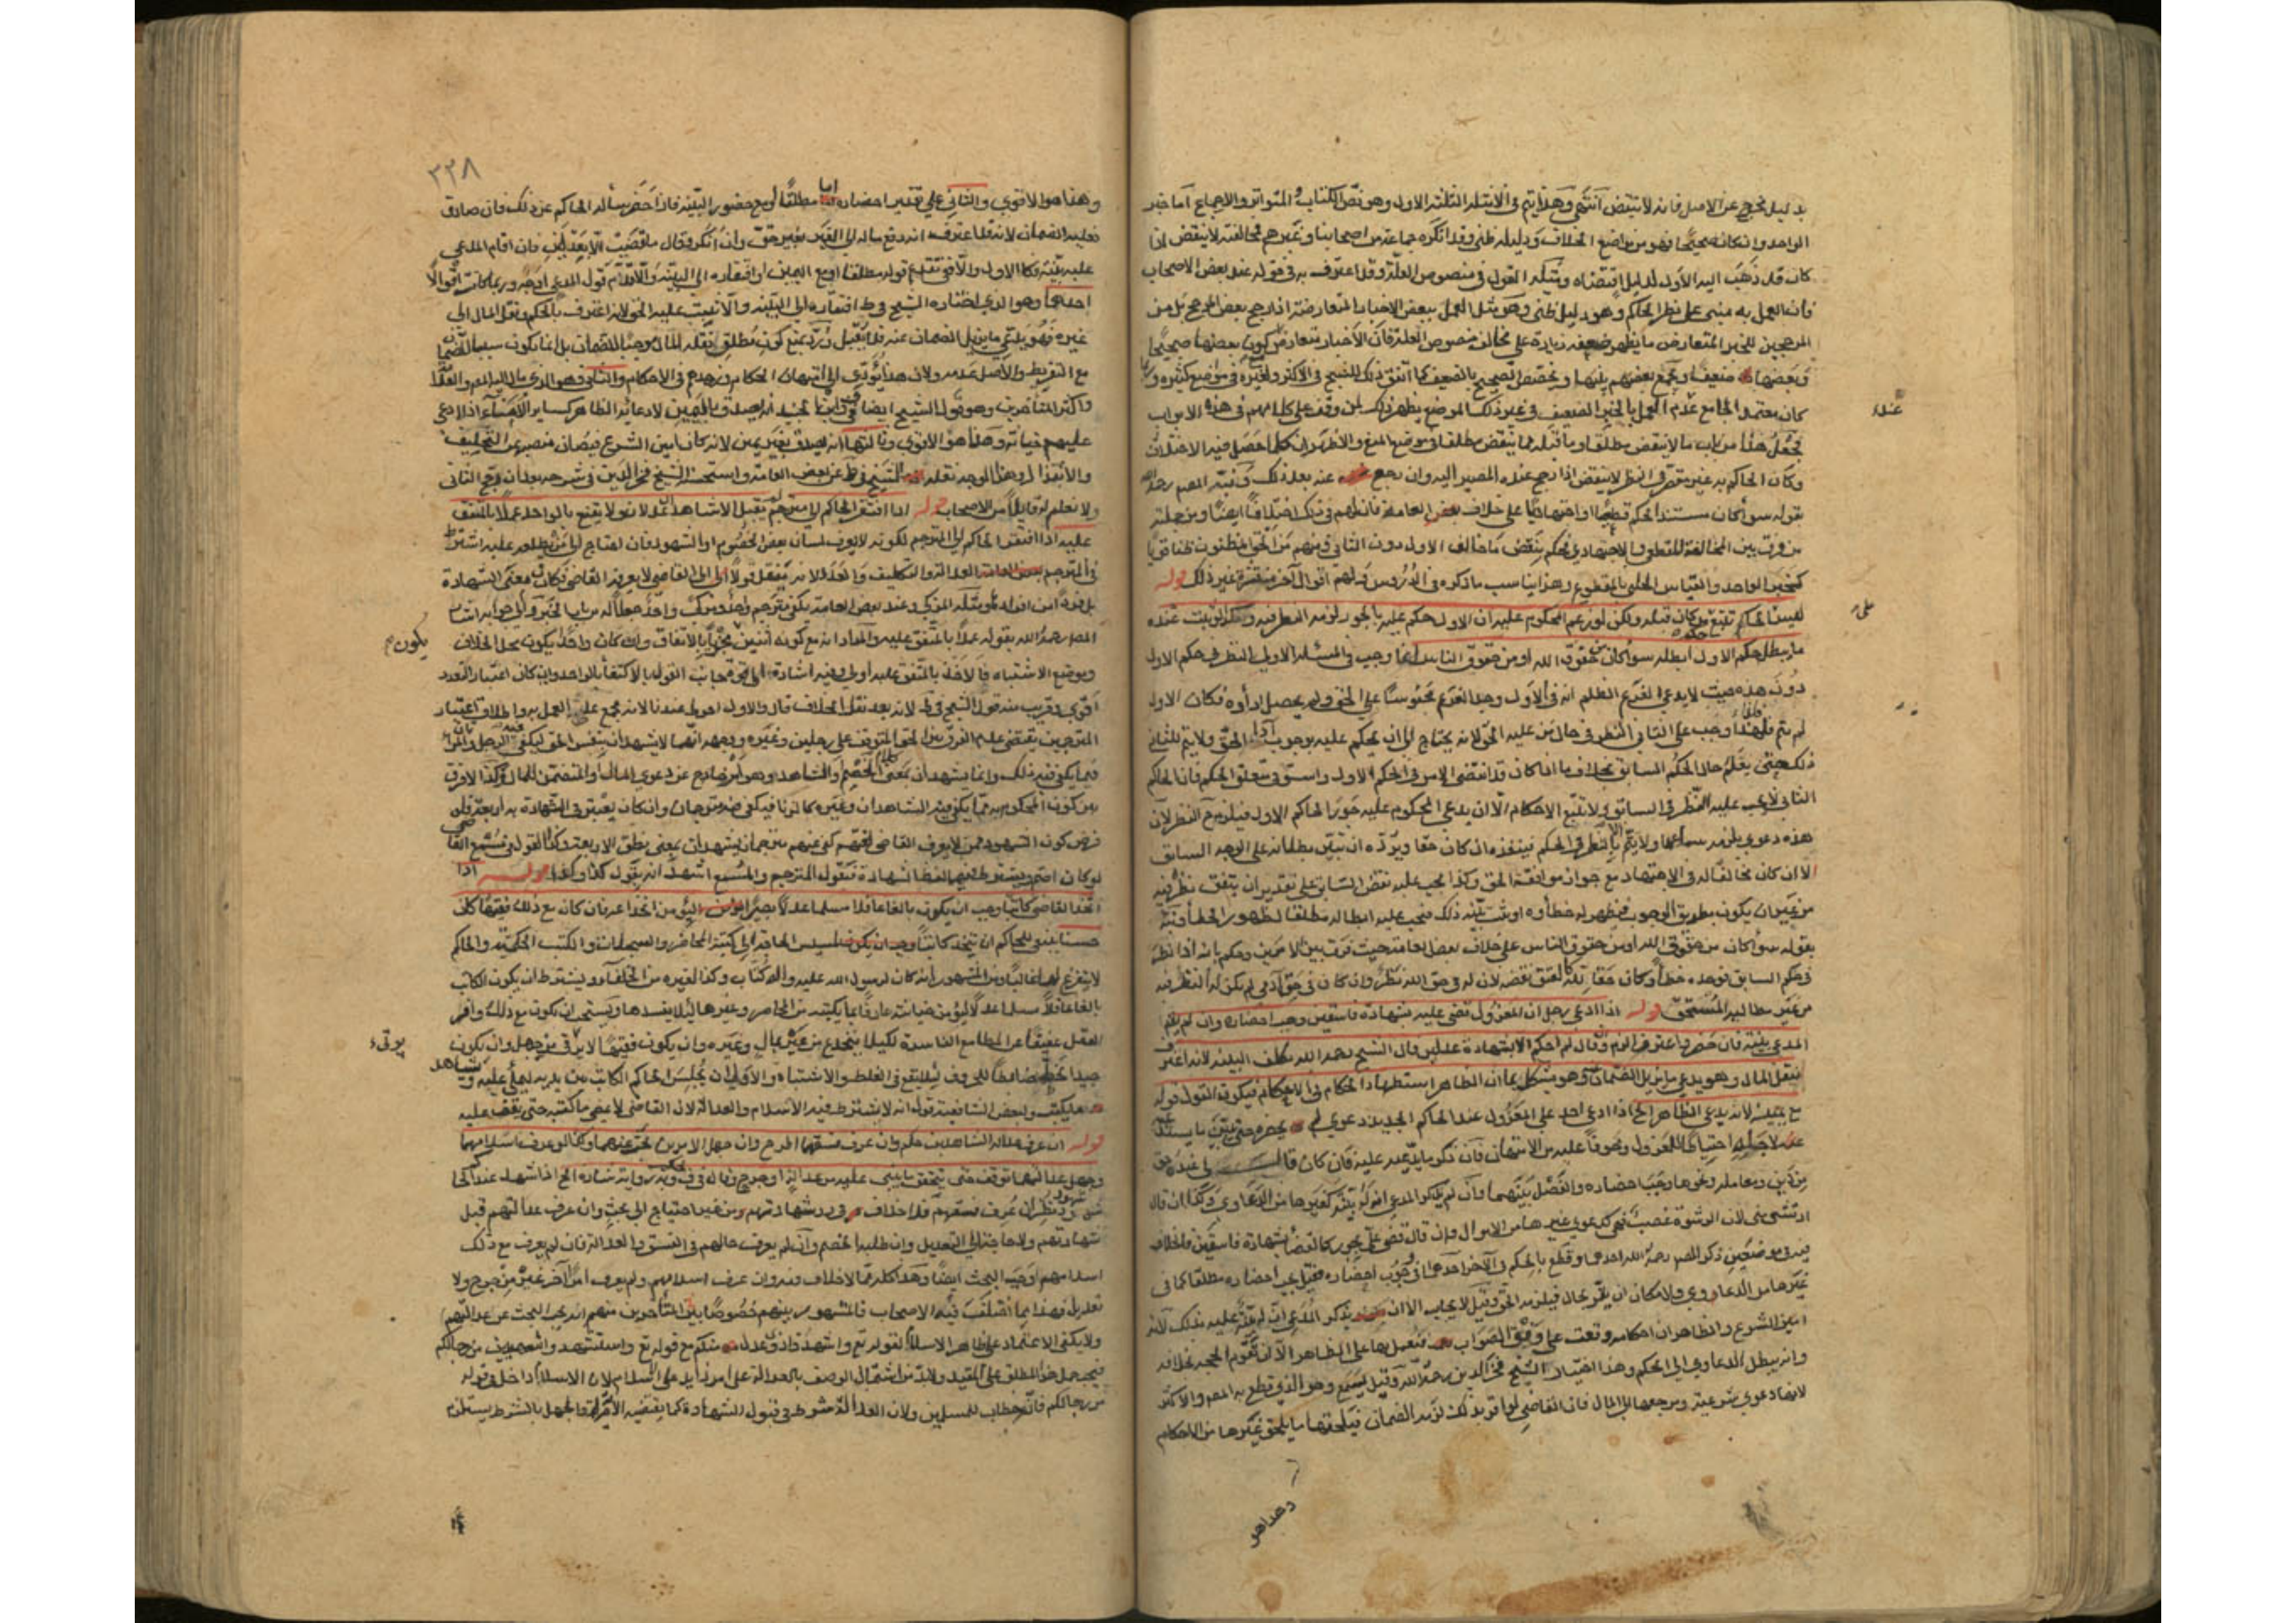 بدليل يخرج عن الاصل فانه لا ينتقض انتهى وهذا يتم في الامثلة الثلثة الاول وهو نص الكتاب والمتواتر والاجماع اما خبر
الواحد وان كان صحيحا فهو من مواضع الخلاف ودليله ظني وقد انكره جماعة من اصحابنا وغيرهم فمخالفته لا ينقض اذا
كان قد ذهب اليه الاول لدليل اقتضاه ومثله القول في منصوص العلة وقد اعترف به في قوله عند بعض الاصحاب
فان العمل به مبني على نظر الحاكم وهو دليل ظني وهو مثل العمل ببعض الاخبار المتعارضة اذا رجح بعض المرجح بل من
المرجحين للخبر المتعارض ما يظهر ضعفه زيادة على مخالف منصوص العلة فان الاخبار يتعارض كون بعضها صحيحا
وبعضها ضعيفا ويجمع بعضهم بينها ويخصص الصحيح بالضعيف كما اتفق ذلك للشيخ في الاكثر ولغيره في مواضع كثيرة
كان يعتمد الجامع عدم العمل بالخبر الضعيف في غير ذلك الموضع يظهر ذلك لمن وقف على كلامهم في هذه الابواب
فجعل هذا من باب ما لا ينقض مطلقا وما قبله مما ينقض مطلقا في موضع المنع والاظهر ان كلما حصل فيه الاختلاف
وكان الحاكم به غير مقصر في النظر لا ينتقض اذا رجح عنده المصير اليه وان رجع عنه بعد ذلك ونبه المصم رحمه الله
بقوله سواء كان مستند الحكم قطعيا او اجتهاديا على خلاف بعض العامة فان لهم في ذلك اختلافا ايضا ومن جملته
من فرق بين المخالفة للقطعي والاجتهادي فحكم بنقض ما خالف الاول دون الثاني ومنهم من الحق المظنون ظنا قويا
كخبر الواحد والقياس الجلي بالمقطوع وهذا يناسب ما ذكره في الدروس ولهم اقوال آخر منتشرة غير ذلك قوله
ليس للحاكم تتبع حكم من كان قبله ولكن لو زعم المحكوم عليه ان الاول حكم عليه بالجور لزمه النظر فيه وكذا لو ثبت عنده
ما يبطل حكم الاول ابطله سواء كان من حقوق الله او من حقوق الناس انما وجب في المسئلة الاولى النظر في حكم الاول
دون هذه حيث لا يدعي الغريم الظلم انه في الاول وجد الغريم محبوسا على الحق ولم يحصل اداؤه فكان الاول
لم يتم فلهذا وجب على الثاني النظر في حال من عليه الحق لانه يحتاج الى ان يحكم عليه بوجوب اداء الحق ولا يتم للثاني
ذلك حتى يعلم حال الحكم السابق بخلاف ما اذا كان قد انقضى الامر في الحكم الاول واستوفى متعلق الحكم فان الحاكم
الثاني لا يجب عليه النظر في السابق ولا تتبع الاحكام الا ان يدعي المحكوم عليه جور الحاكم الاول فيلزمه ح النظر لان
هذه دعوى يلزمه سماعها ولا يتم الا بالنظر في الحكم فينفذه ان كان حقا ويرده ان تبين بطلانه على الوجه السابق
الا ان كان مخالفا له في الاجتهاد مع جواز موافقة الحق وكذا يجب عليه نقض السابق على تقدير ان يتفق نظره فيه
من غير ان يكون بطريق الوجوب فيظهر له خطأوه او تثبت بينة ذلك فيجب عليه ابطاله مطلقا لظهور الخطأ ونبه
بقوله سواء كان من حقوق الله او من حقوق الناس على خلاف بعض العامة حيث فرق بين الامرين وحكم بانه اذا نظر
في حكم السابق فوجده خطأ وكان حقا لله كالعتق نقضه لان له في حق الله نظر وان كان في حق آدمي لم يكن له النظر فيه
من غير مطالبة المستحق قوله اذا ادعى رجل ان المعزول قضى عليه بشهادة فاسقين وجب احضاره وان لم يقم
المدعي بينة فان حضر واعترف الزم وان قال لم احكم الا بشهادة عدلين قال الشيخ رحمه الله يكلف البينة لانه اعترف
بنقل المال وهو يدعي ما يزيل الضمان وهو يشكل بما ان الظاهر استظهار الحكام في الاحكام فيكون القول قوله
مع يمينه لانه يدعي الظاهر الخ اذا ادعى احد على المعزول عند الحاكم الجديد دعوى لم يحضره حتى يتبين ما يستدعي
عنده لاجله احتياطا للمعزول وخوفا عليه من الامتهان فان ذكر ما يدعيه عليه فان كان قال لي عنده حق
من دين ومعاملة ونحوها وجب احضاره والفصل بينهما وان لم يذكر المدعي ان له بينة كغيرها من الدعاوي وكذا ان قال
ارتشى مني لان الرشوة غصب فهي كدعوى غيرها من الاموال وان قال قضى علي بجور كالقضاء بشهادة فاسقين فالخلاف
فيه في موضعين ذكر المصم رحمه الله احدهما وقطع بالحكم في الآخر احدهما في وجوب احضاره فقيل يجب احضاره مطلقا كما في
غيرها من الدعاوي ولامكان ان يقر بحال فيلزمه الحق وقيل لا يجاب الا ان يذكر المدعي ان له بينة عليه بذلك لانه
امين الشرع والظاهر ان احكامه وقعت على وفق الصواب فنعمل بها على الظاهر الا ان تقوم الحجة بخلافه
وانه يبطل الدعاوي الى الحكم وهذا اختيار الشيخ فخر الدين رحمه الله وقيل يسمع وهو الذي قطع به المصم والاكثر
لانها دعوى شرعية ومرجعها الى المال فان القاضي لو اقر بذلك لزمه الضمان فيلحقها ما يلحق غيرها من الاحكام
وهذا هو
٣٣٨
وهذا هو الاقوى والثاني على تقدير احضاره اما مطلقا او مع حضور البينة فاذا حضر سأله الحاكم عن ذلك فان صادق
فعليه الضمان لانه قد اعترف انه دفع ماله الى الغير بغير حق وان انكر وقال ما قضيت الا بعدلين فان اقام المدعي
عليه بينة فكالاول والا ففي تقديم قوله مطلقا او مع اليمين او افتقاره الى البينة والا قدم قول المدعي اوجه وربما كانت اقوالا
احدها وهو الذي اختاره الشيخ في ط افتقاره الى البينة والا ثبت عليه الحق لانه اعترف بالحكم ونقل المال الى
غيره فهو يدعي ما يزيل الضمان عنه فلا يقبل ورد بمنع كون مطلق نقله المال موجبا للضمان بل انما يكون سببا للضمان
مع التفريط والاصل عدمه ولان هذا يؤدي الى امتهان الحكام وزهدهم في الاحكام والثاني وهو الذي مال اليه المصم والعلامة
واكثر المتأخرين وهو قول الشيخ ايضا في ف انه يصدق باليمين لادعائه الظاهر كساير الامناء اذا ادعي
عليهم خيانة وهذا هو الاقوى وثالثها انه يصدق بغير يمين لانه كان امين الشرع فيصان منصبه عن التحليف
والابتذال وهذا الوجه نقله الشيخ في ط عن بعض العامة واستحسنه الشيخ فخر الدين في شرحه بعد ان رجح الثاني
ولا نعلم به قايلا من الاصحاب قوله اذا افتقر الحاكم الى مترجم لم يقبل الا شاهدان عدلان ولا يقنع بالواحد عملا بالمتفق
عليه اذا افتقر الحاكم الى المترجم لكونه لا يعرف لسان بعض الخصوم او الشهود فان احتاج الى من يطلعه عليه اشترط
في المترجم العدالة والتكليف والعدد لانه ينقل قولا الى القاضي لا يعرفه القاضي فكان في معنى الشهادة
بل فردا من افراده ومثله المزكي وعند بعض العامة يكفي مترجم واحد ومزك واحد جعلا له من باب الخبر والى جوابه اشار
المصم رحمه الله بقوله عملا بالمتفق عليه والمراد انه مع كونه اثنين مجز بالاتفاق وان كان واحدا يكون محل الخلاف
وموضع الاشتباه فالاخذ بالمتفق عليه اولى وفيه اشارة الى قوة جانب القول بالاكتفاء بالواحد وان كان اعتبار التعدد
اقوى وقريب منه قول الشيخ في ط لانه بعد نقل الخلاف قال والاول احوط عندنا لانه مجمع على العمل به واطلاق اعتبار
المترجمين يقتضي عدم الفرق بين الحق المتوقف على رجلين وغيره ووجهه انهما لا يشهدان بنفس الحق ليكفي فيه الرجل والمرأتان
فيما يكفي فيه ذلك وانما يشهدان بمعنى كلام الخصم والشاهد وهو امر خارج عن دعوى المال والمتضمن للمال وكذا لا فرق
بين كون المحكوم به مما يكفي فيه الشاهدان وغيره كالزنا فيكفي فيه مترجمان وان كان يعتبر في الشهادة به اربعة فلو
فرض كون الشهود ممن لا يعرف القاضي لغتهم كفى عنهم مترجمان يشهدان بمعنى نطق الاربعة وكذا القول في مسمع القاضي
لو كان اصم ويشترط فيهما لفظ الشهادة فيقول المترجم والمسمع اشهد انه يقول كذا وكذا قوله اذا
اتخذ القاضي كاتبا وجب ان يكون بالغا عاقلا مسلما عدلا بصيرا ليؤمن انخداعه فان كان مع ذلك فقيها كان
حسنا ينبغي للحاكم ان يتخذ كاتبا لمسيس الحاجة الى كتبة المحاضر والسجلات والكتب الحكمية والحاكم
لا يتفرغ لها غالبا ومن المشهور انه كان لرسول الله عليه وآله كتاب وكذا لغيره من الخلفاء ويشترط ان يكون الكاتب
بالغا عاقلا مسلما عدلا ليؤمن خيانته عارفا بما يكتبه من المحاضر وغيرها لئلا يفسدها ويستحب ان يكون مع ذلك وافر
العقل عفيفا عن المطامع الفاسدة لكيلا ينخدع من غيره بمال وغيره وان يكون فقيها لا يؤتى من جهل وان يكون
جيد الخط ضابطا للحروف لئلا يقع في الغلط والاشتباه والاولى ان يجلس الحاكم الكاتب بين يديه ليملي عليه ويشاهد
ما يكتب ولبعض الشافعية قول انه لا يشترط فيه الاسلام والعدالة لان القاضي لا يمضي ما كتبه حتى يقف عليه
قوله ان عرف عدالة الشاهدين حكم وان عرف فسقهما اطرح وان جهل الامرين بحث عنهما وكذا لو عرف اسلامهما
وجهل عدالتهما توقف حتى يتحقق ما يبني عليه من عدالة او جرح وقال في ف يحكم وبه رواية شاذة الخ اذا شهد عند الحاكم
شهود نظر ان عرف فسقهم فلا خلاف في رد شهادتهم من غير احتياج الى بحث وان عرف عدالتهم قبل
شهادتهم ولا حاجة الى التعديل وان طلبه الخصم وان لم يعرف حالهم في الفسق والعدالة فان لم يعرف مع ذلك
اسلامهم وجب البحث ايضا وهذا كله مما لا خلاف فيه وان عرف اسلامهم ولم يعرف امرا آخر غيره من جرح ولا
تعديل فهذا مما اختلف فيه الاصحاب فالمشهور بينهم خصوصا بين المتأخرين منهم انه يجب البحث عن عدالتهم
ولا يكفي الاعتماد على ظاهر الاسلام لقوله تع واشهدوا ذوي عدل منكم مع قوله تع واستشهدوا شهيدين من رجالكم
فيجب حمل المطلق على المقيد ولا بد من اشتمال الوصف بالعدالة على امر زايد على الاسلام لان الاسلام داخل في قوله
من رجالكم فانه خطاب للمسلمين ولان العدالة شرط في قبول الشهادة كما يقتضيه الآية والجهل بالشرط يستلزم
يكون